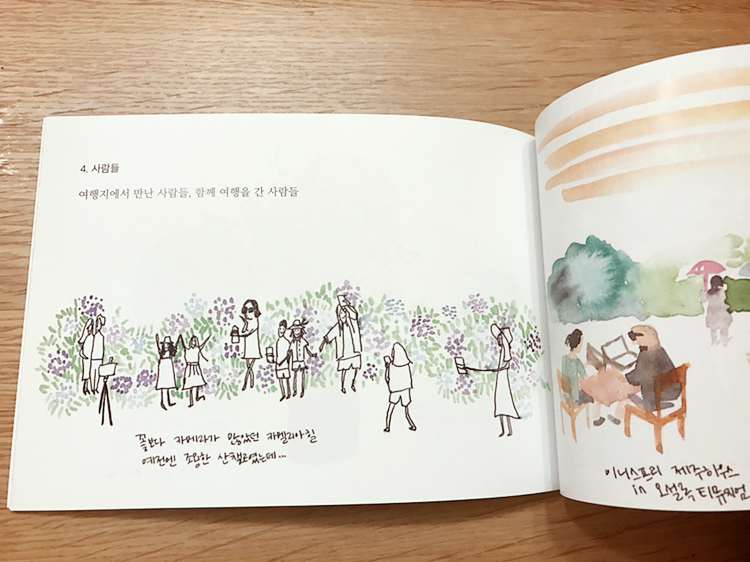 4. 사람들
여행지에서 만난 사람들, 함께 여행을 간 사람들
꽃보다 카메라가 많았던 카멜리아힐
예전엔 조용한 산책로였는데...
이니스프리 제주하우스
in 오설록 티뮤지엄